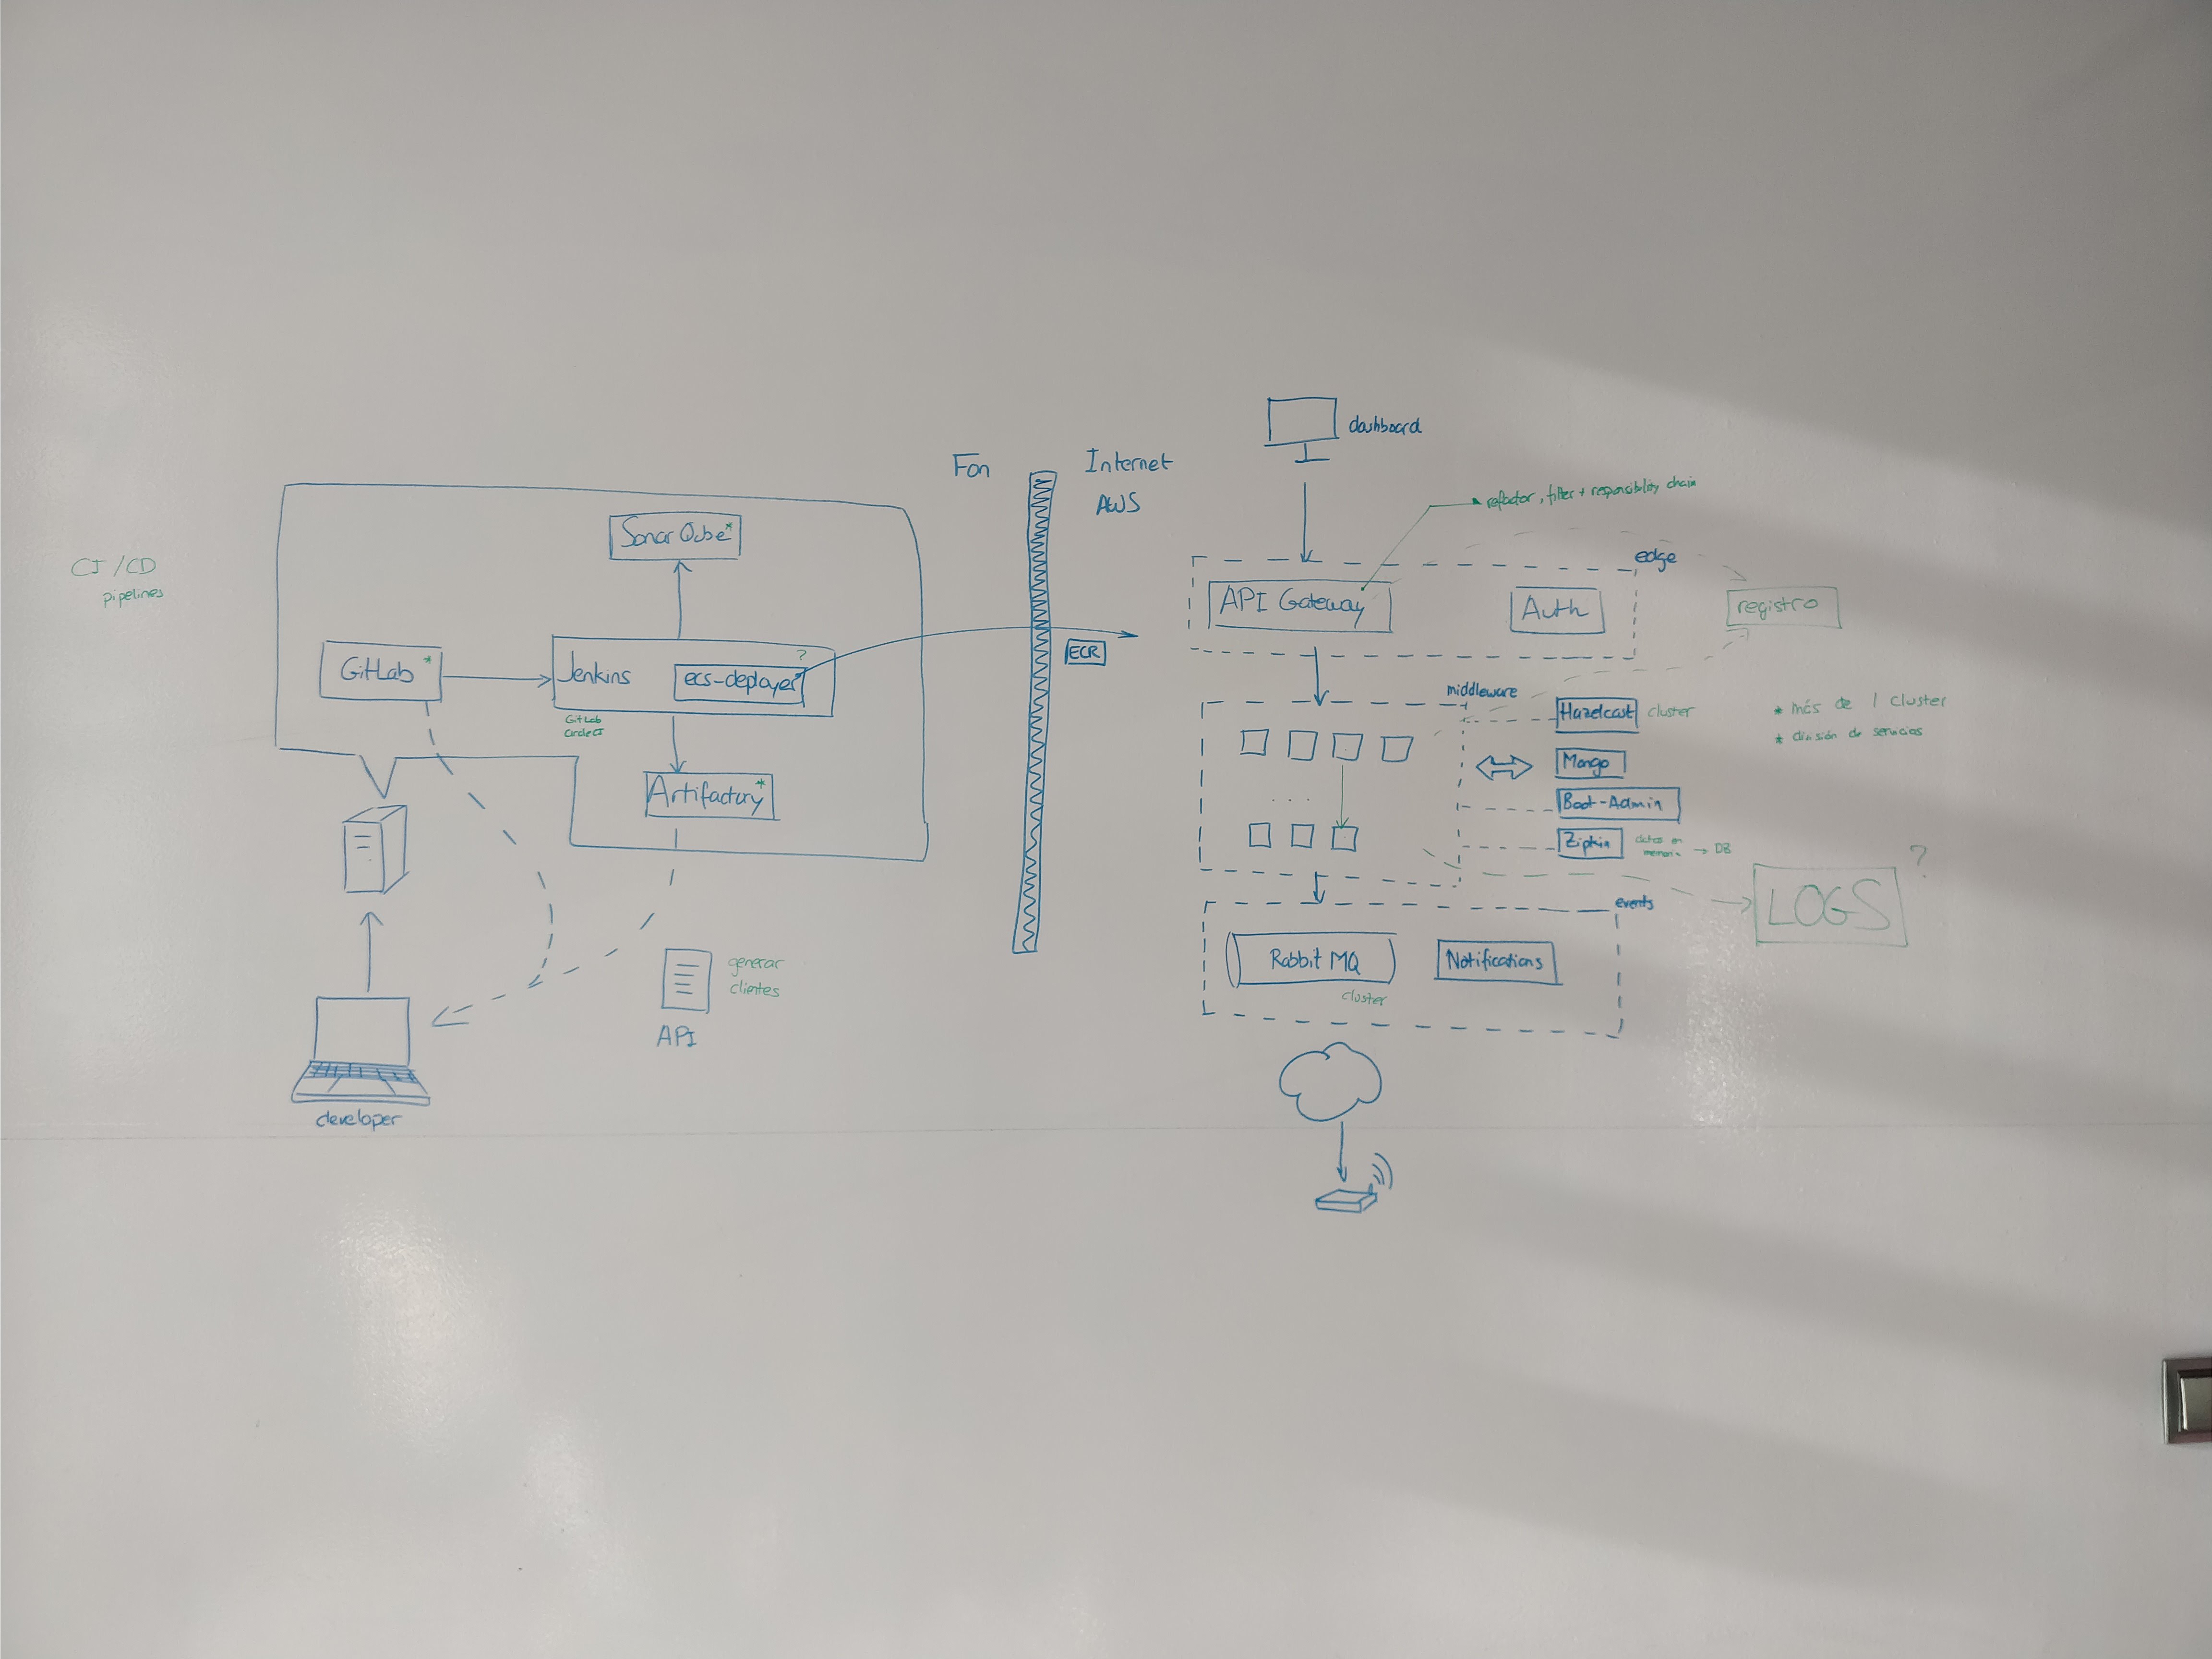 CI/CD
pipelines
SonarQube*
GitLab *
Jenkins
ecs-deployer
?
*
GitLab
CircleCI
Artifactory *
developer
generar
clientes
API
Fon
Internet
AWS
ECR
dashboard
refactor, filter + responsibility chain
edge
API Gateway
Auth
registro
middleware
...
Hazelcast cluster
Mongo
Boot-Admin
Zipkin
datos en
memoria → DB
* más de 1 cluster
* división de servicios
LOGS
?
events
Rabbit MQ
cluster
Notifications